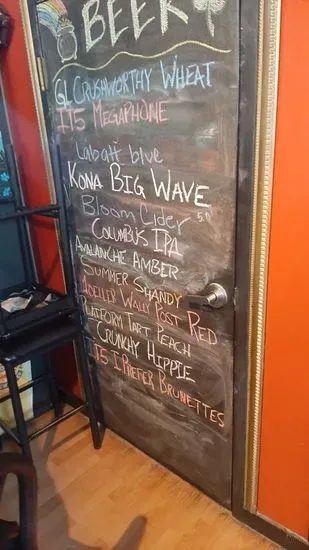 BEER
GL CRUSHWORTHY WHEAT
IT5 MEGAPHONE
Labatt blue
KONA BIG WAVE
Bloom Cider 5.0
COLUMBUS IPA
AVALANCHE AMBER
SUMMER SHANDY
HOELLES WALLY POST RED
PLATFORM TART PEACH
CRUNCHY HIPPIE
IT5 I PREFER BRUNETTES